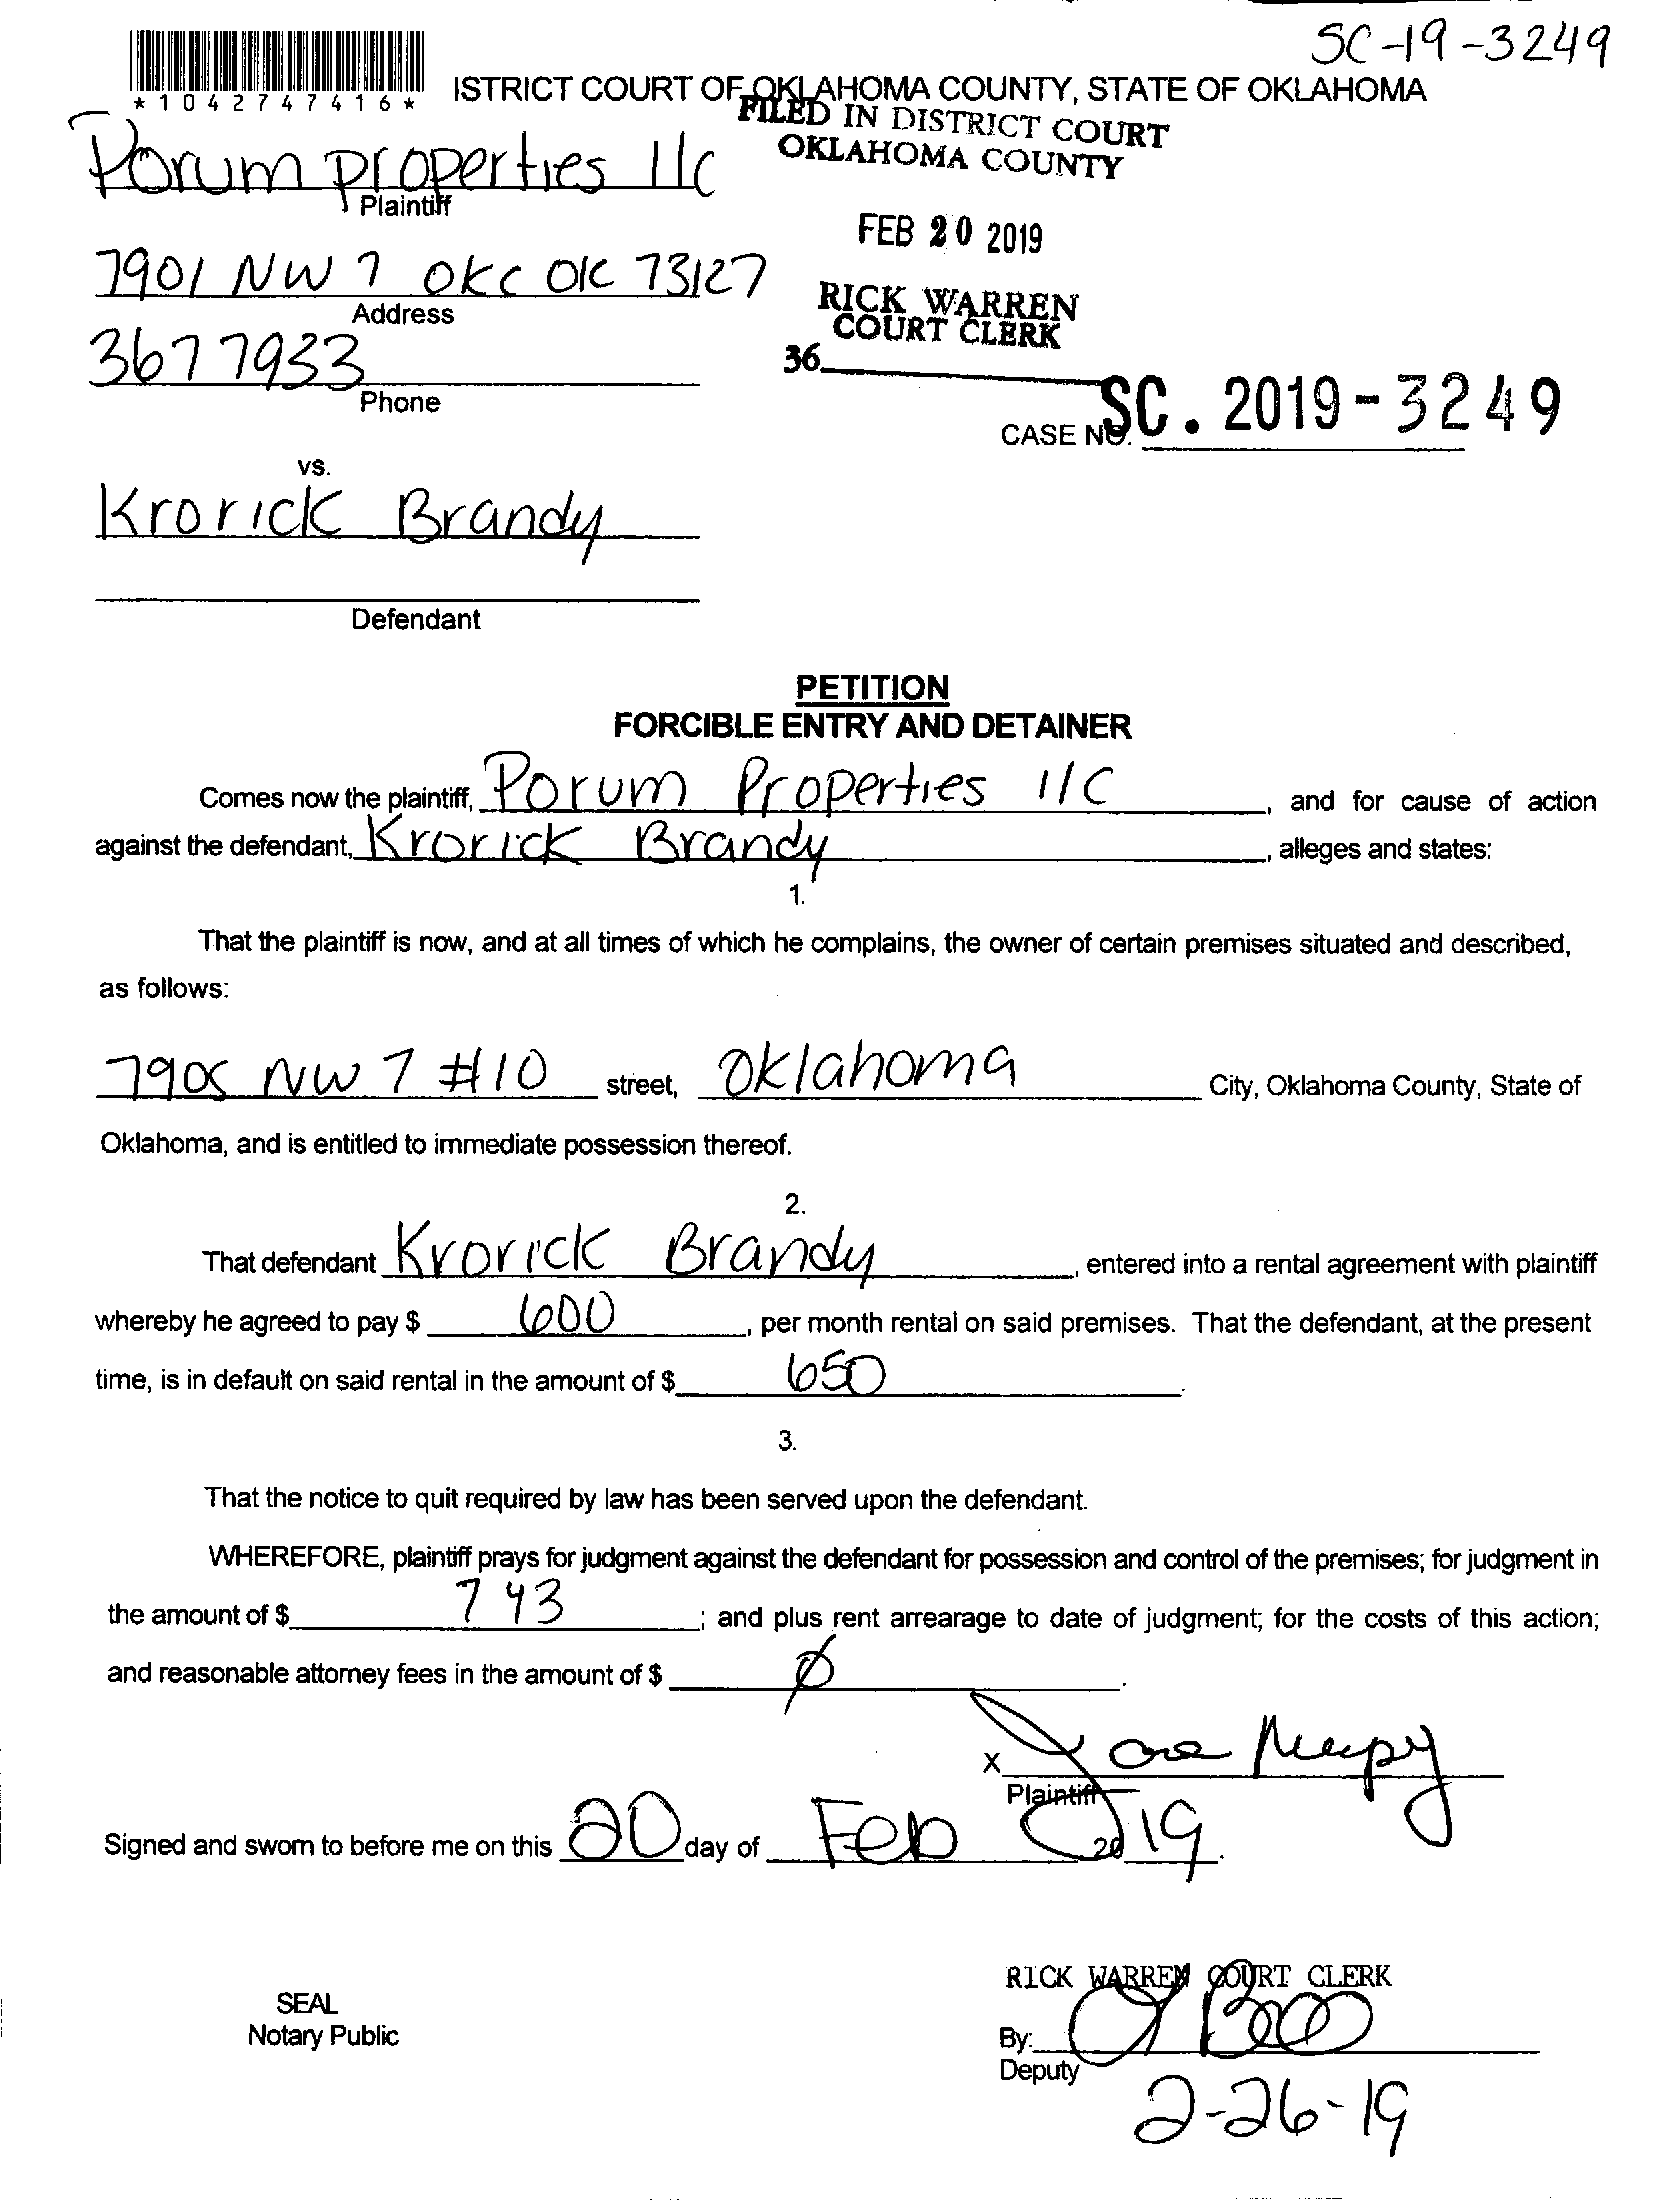 SC-19-3249
*1042747416*
ISTRICT COURT OF OKLAHOMA COUNTY, STATE OF OKLAHOMA
FILED IN DISTRICT COURT
OKLAHOMA COUNTY
Porum properties llc
Plaintiff
FEB 20 2019
7901 NW 7 OKC OK 73127
Address
RICK WARREN
COURT CLERK
367 7933
Phone
36
CASE NO. SC. 2019-3249
vs.
Krorick Brandy
Defendant
PETITION
FORCIBLE ENTRY AND DETAINER
Comes now the plaintiff, Porum Properties llC, and for cause of action
against the defendant, Krorick Brandy, alleges and states:
1.
That the plaintiff is now, and at all times of which he complains, the owner of certain premises situated and described,
as follows:
7905 NW 7 #10 street, Oklahoma City, Oklahoma County, State of
Oklahoma, and is entitled to immediate possession thereof.
2.
That defendant Krorick Brandy, entered into a rental agreement with plaintiff
whereby he agreed to pay $ 600, per month rental on said premises. That the defendant, at the present
time, is in default on said rental in the amount of $ 650.
3.
That the notice to quit required by law has been served upon the defendant.
WHEREFORE, plaintiff prays for judgment against the defendant for possession and control of the premises; for judgment in
the amount of $ 743; and plus rent arrearage to date of judgment; for the costs of this action;
and reasonable attorney fees in the amount of $ ∅.
X
Plaintiff
Signed and sworn to before me on this 20 day of Feb 2019.
RICK WARREN COURT CLERK
SEAL
Notary Public
By:
Deputy
2-26-19